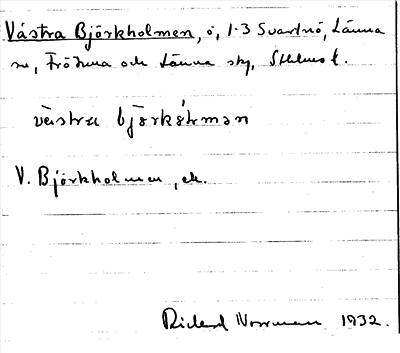 Västra Björkholmen, ö, 1·3 Svartnö, Länna
sn, Frötuna och Länna skg, Sthlms l.
västra björkå̀rmən
V. Björkholmen, ek.
Rickard Norrman 1932.